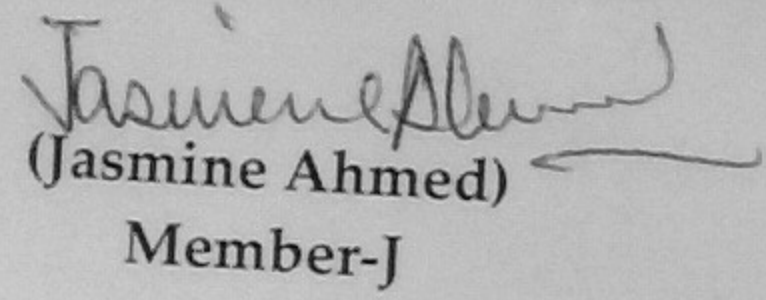 Jasmine Ahmed
(Jasmine Ahmed)
Member-J